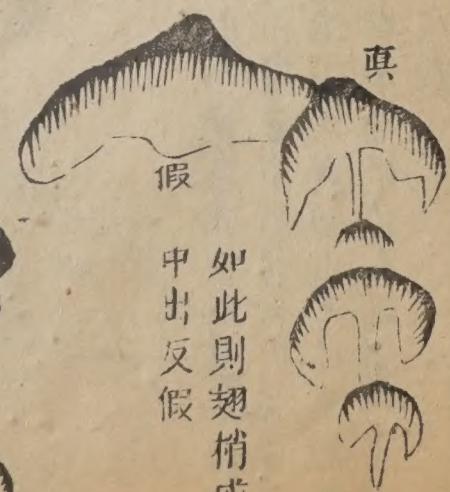 真
假
如此則翅梢
中出反假